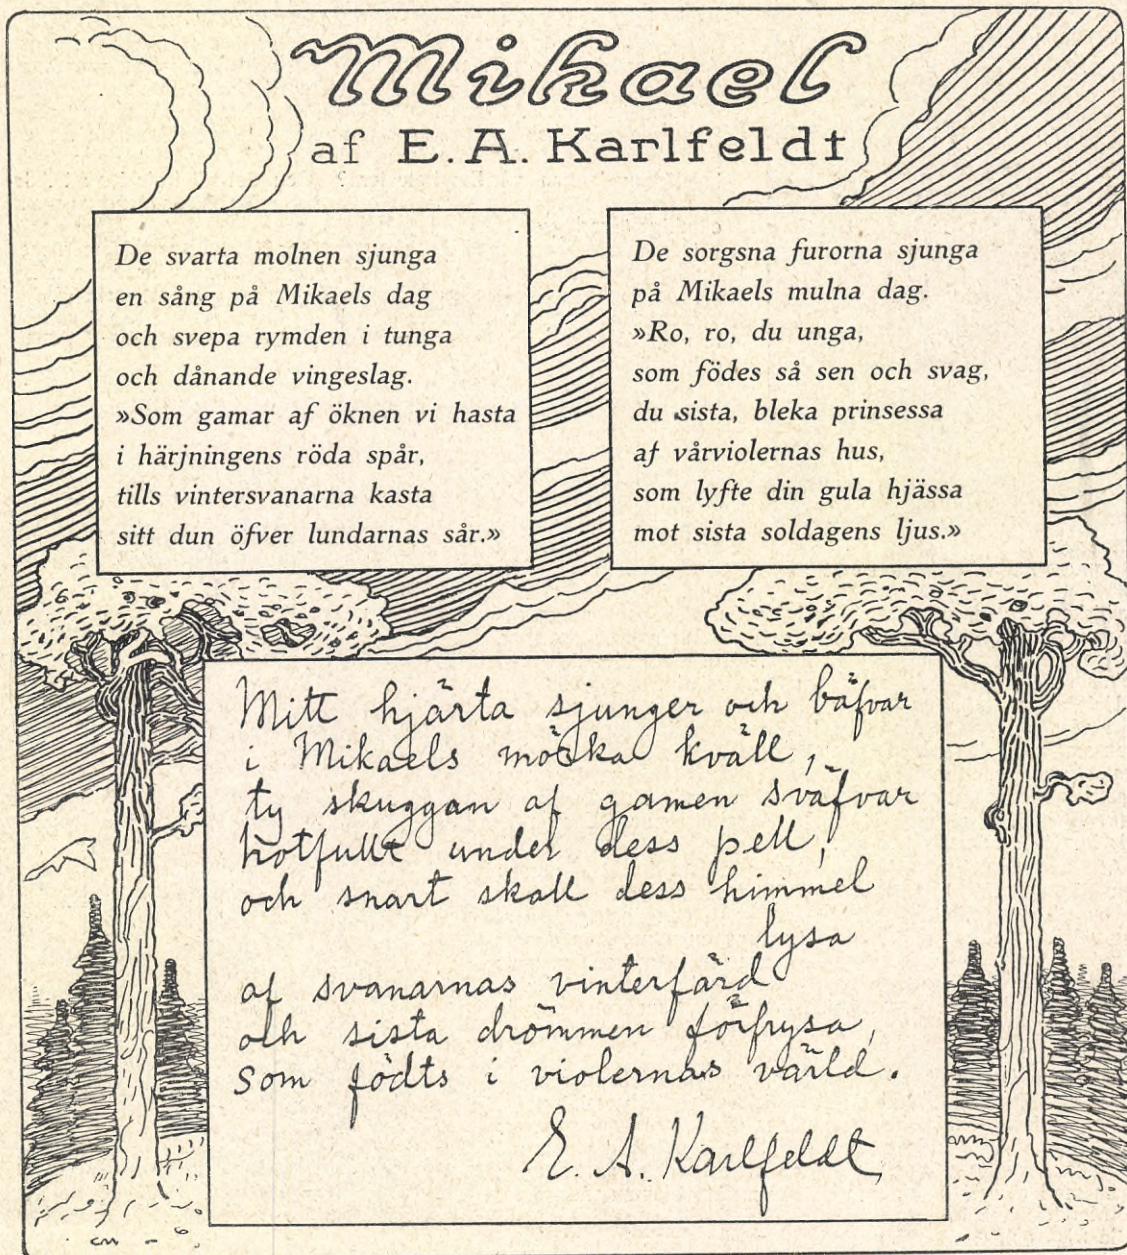 Mikael
af E. A. Karlfeldt
De svarta molnen sjunga
en sång på Mikaels dag
och svepa rymden i tunga
och dånande vingeslag.
»Som gamar af öknen vi hasta
i härjningens röda spår,
tills vintersvanarna kasta
sitt dun öfver lundarnas sår.»
De sorgsna furorna sjunga
på Mikaels mulna dag.
»Ro, ro, du unga,
som födes så sen och svag,
du sista, bleka prinsessa
af vårviolernas hus,
som lyfte din gula hjässa
mot sista soldagens ljus.»
Mitt hjärta sjunger och bäfvar
i Mikaels mörka kväll,
ty skuggan af gamen sväfvar
hotfullt under dess pell,
och snart skall dess himmel
lysa
af svanarnas vinterfärd
och sista drömmen förfrysa,
som födts i violernas värld.
E. A. Karlfeldt